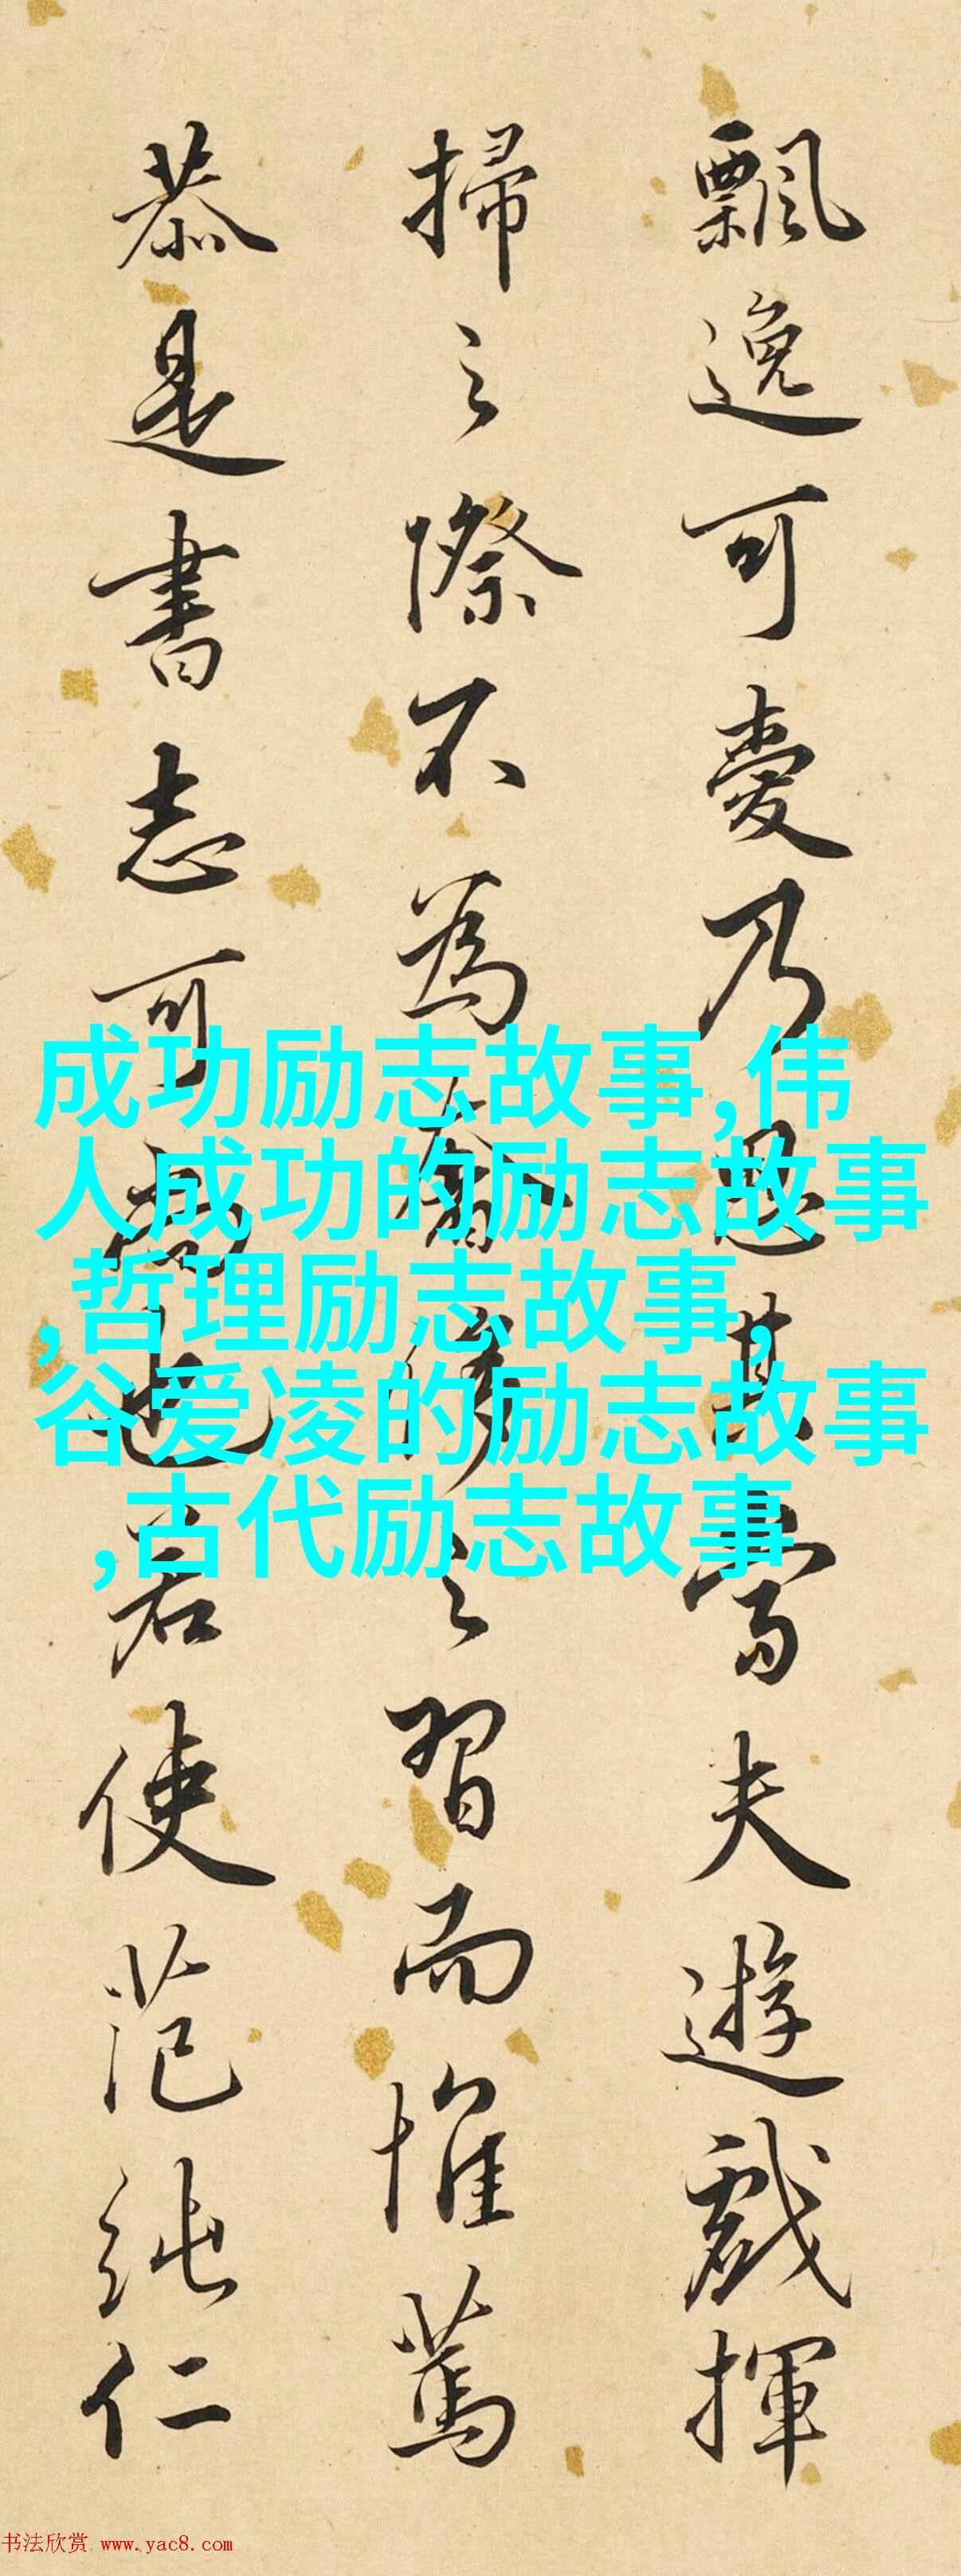 飄逸可愛乃思其當夫遊戲揮
掃之際不為奢侈之習而惟篤
恭是書志可尚也若使范純仁
成功励志故事,伟
人成功的励志故事
,哲理励志故事,
谷爱凌的励志故事
,古代励志故事
书法欣赏 www.yac8.com